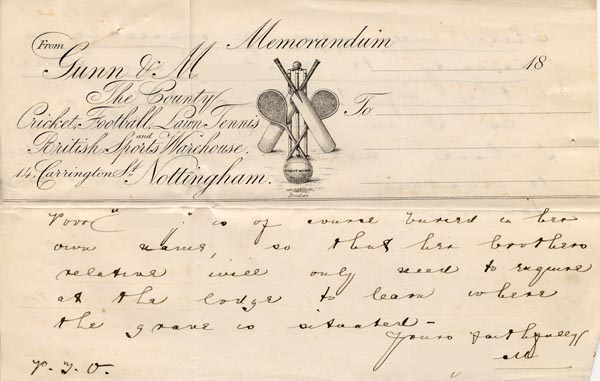 From
Memorandum
Gunn & M
18
The County
To
Cricket, Football, Lawn Tennis
and
British Sports Warehouse.
14, Carrington St. Nottingham.
Poor " " is of course buried in her
own name, so that her brothers
relative will only need to enquire
at the lodge to learn where
the grave is situated -
Yours faithfully
M
P. T. O.